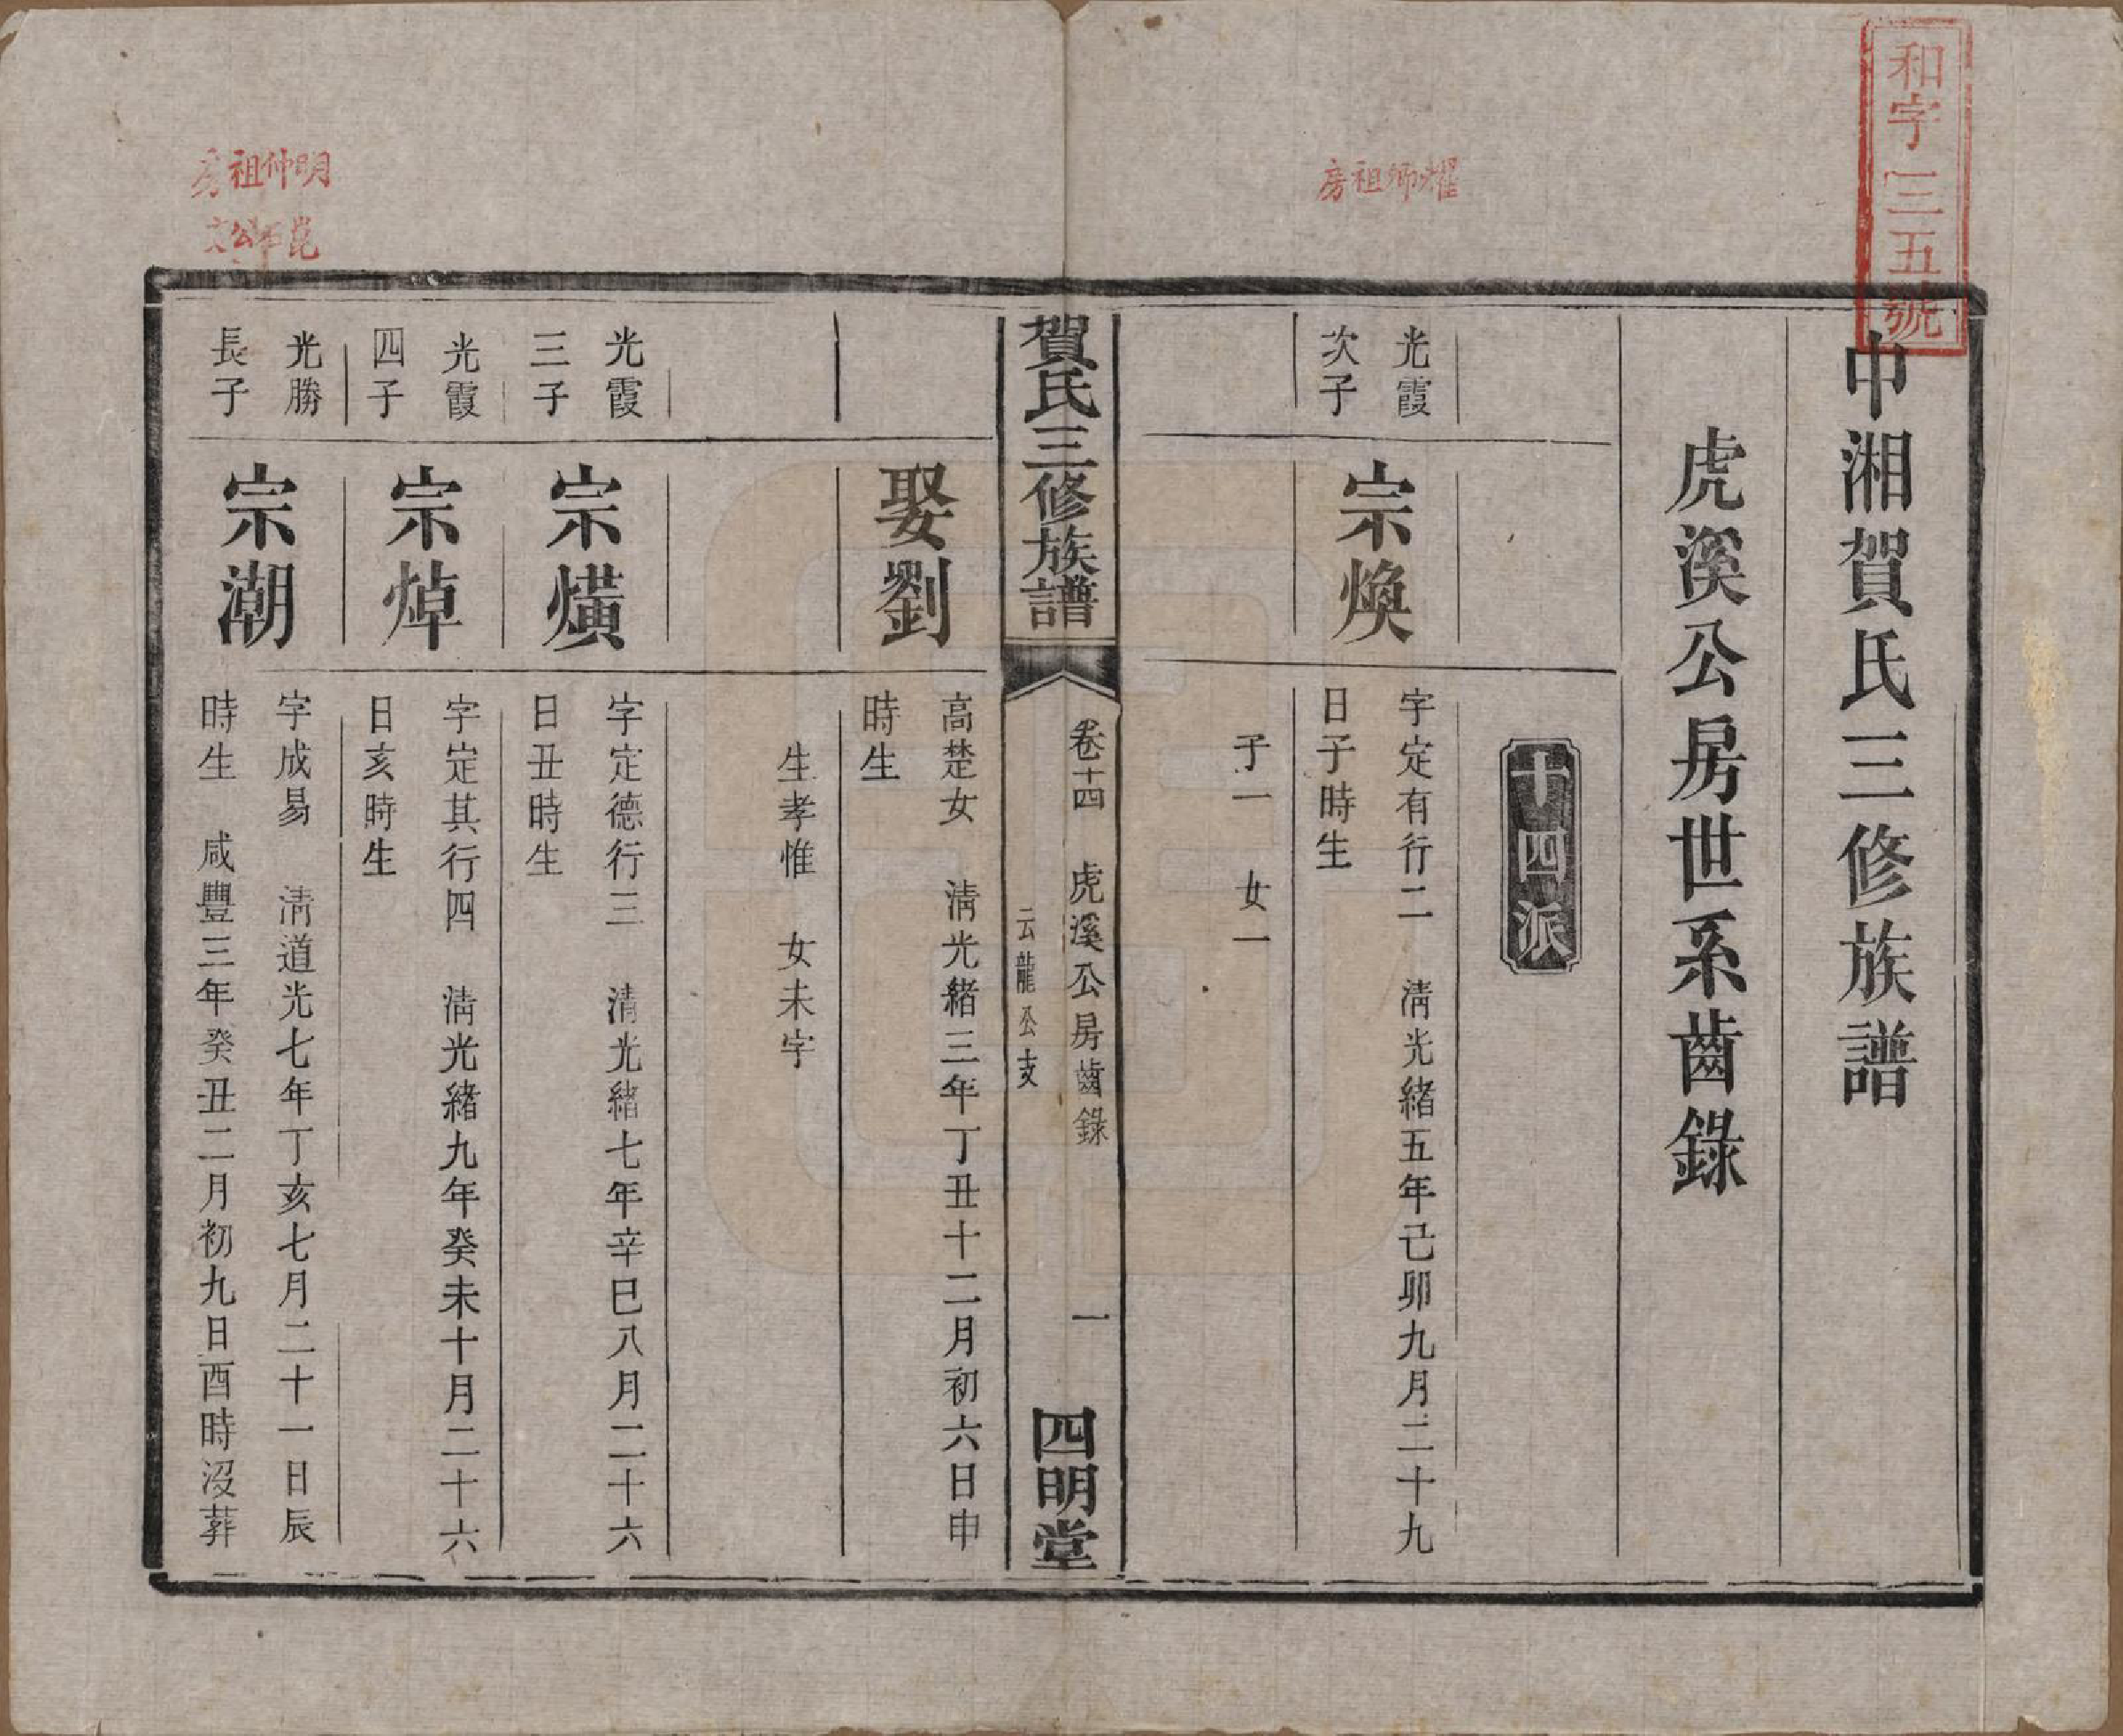 和字一三五號
中湘賀氏三修族譜
虎溪公房世系齒錄
十四派
耀卿祖房
光霞
次子
宗煥
字定有行二　淸光緒五年己卯九月二十九
日子時生
子一　女一
賀氏三修族譜
卷十四　虎溪公房齒錄
云龍公支
一
四明堂
娶劉
高楚女　淸光緒三年丁丑十二月初六日申
時生
生孝惟　女未字
光霞
三子
宗熿
字定德行三　淸光緒七年辛巳八月二十六
日丑時生
光霞
四子
宗焯
字定其行四　淸光緒九年癸未十月二十六
日亥時生
明仲祖房
光勝
長子
宗潮
字成易　淸道光七年丁亥七月二十一日辰
時生　咸豐三年癸丑二月初九日酉時沒葬